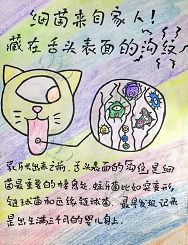 细菌来自家人！
藏在舌头表面的沟纹
乳牙出来之前，舌头表面的沟纹，是细
菌最重要的栖息处。蛀牙菌比如变异形
链球菌和远缘链球菌，最早发现记录
是出生满三个月的婴儿身上。